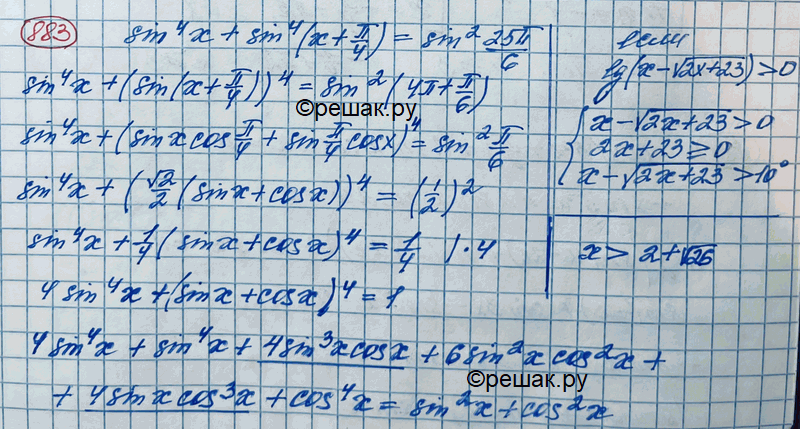 883
sin⁴x + sin⁴(x + π/4) = sin² 25π/6
sin⁴x + (sin(x + π/4))⁴ = sin²(4π + π/6)
©решак.ру
sin⁴x + (sin x cos π/4 + sin π/4 cos x)⁴ = sin² π/6
sin⁴x + (√2/2 (sin x + cos x))⁴ = (1/2)²
sin⁴x + 1/4 (sin x + cos x)⁴ = 1/4 | · 4
4 sin⁴x + (sin x + cos x)⁴ = 1
4 sin⁴x + sin⁴x + 4 sin³x cos x + 6 sin²x cos²x +
©решак.ру
+ 4 sin x cos³x + cos⁴x = sin²x + cos²x
если
lg(x - √2x+23) > 0
{ x - √2x+23 > 0
2x + 23 ≥ 0
x - √2x+23 > 10⁰
x > 2 + √26